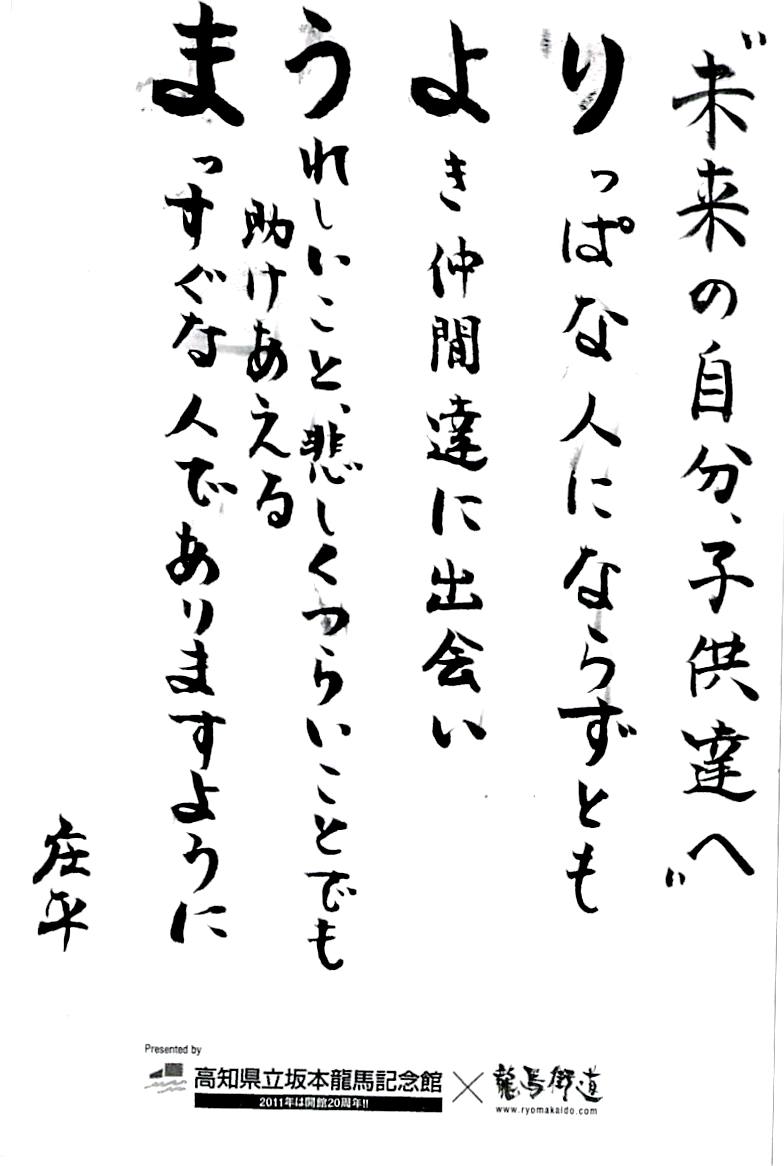 "未来の自分、子供達へ"
りっぱな人にならずとも
よき仲間達に出会い
うれしいこと、悲しくつらいことでも
助けあえる
まっすぐな人でありますように
庄平
Presented by
高知県立坂本龍馬記念館
2011年は開館20周年!!
×
龍馬街道
www.ryomakaido.com